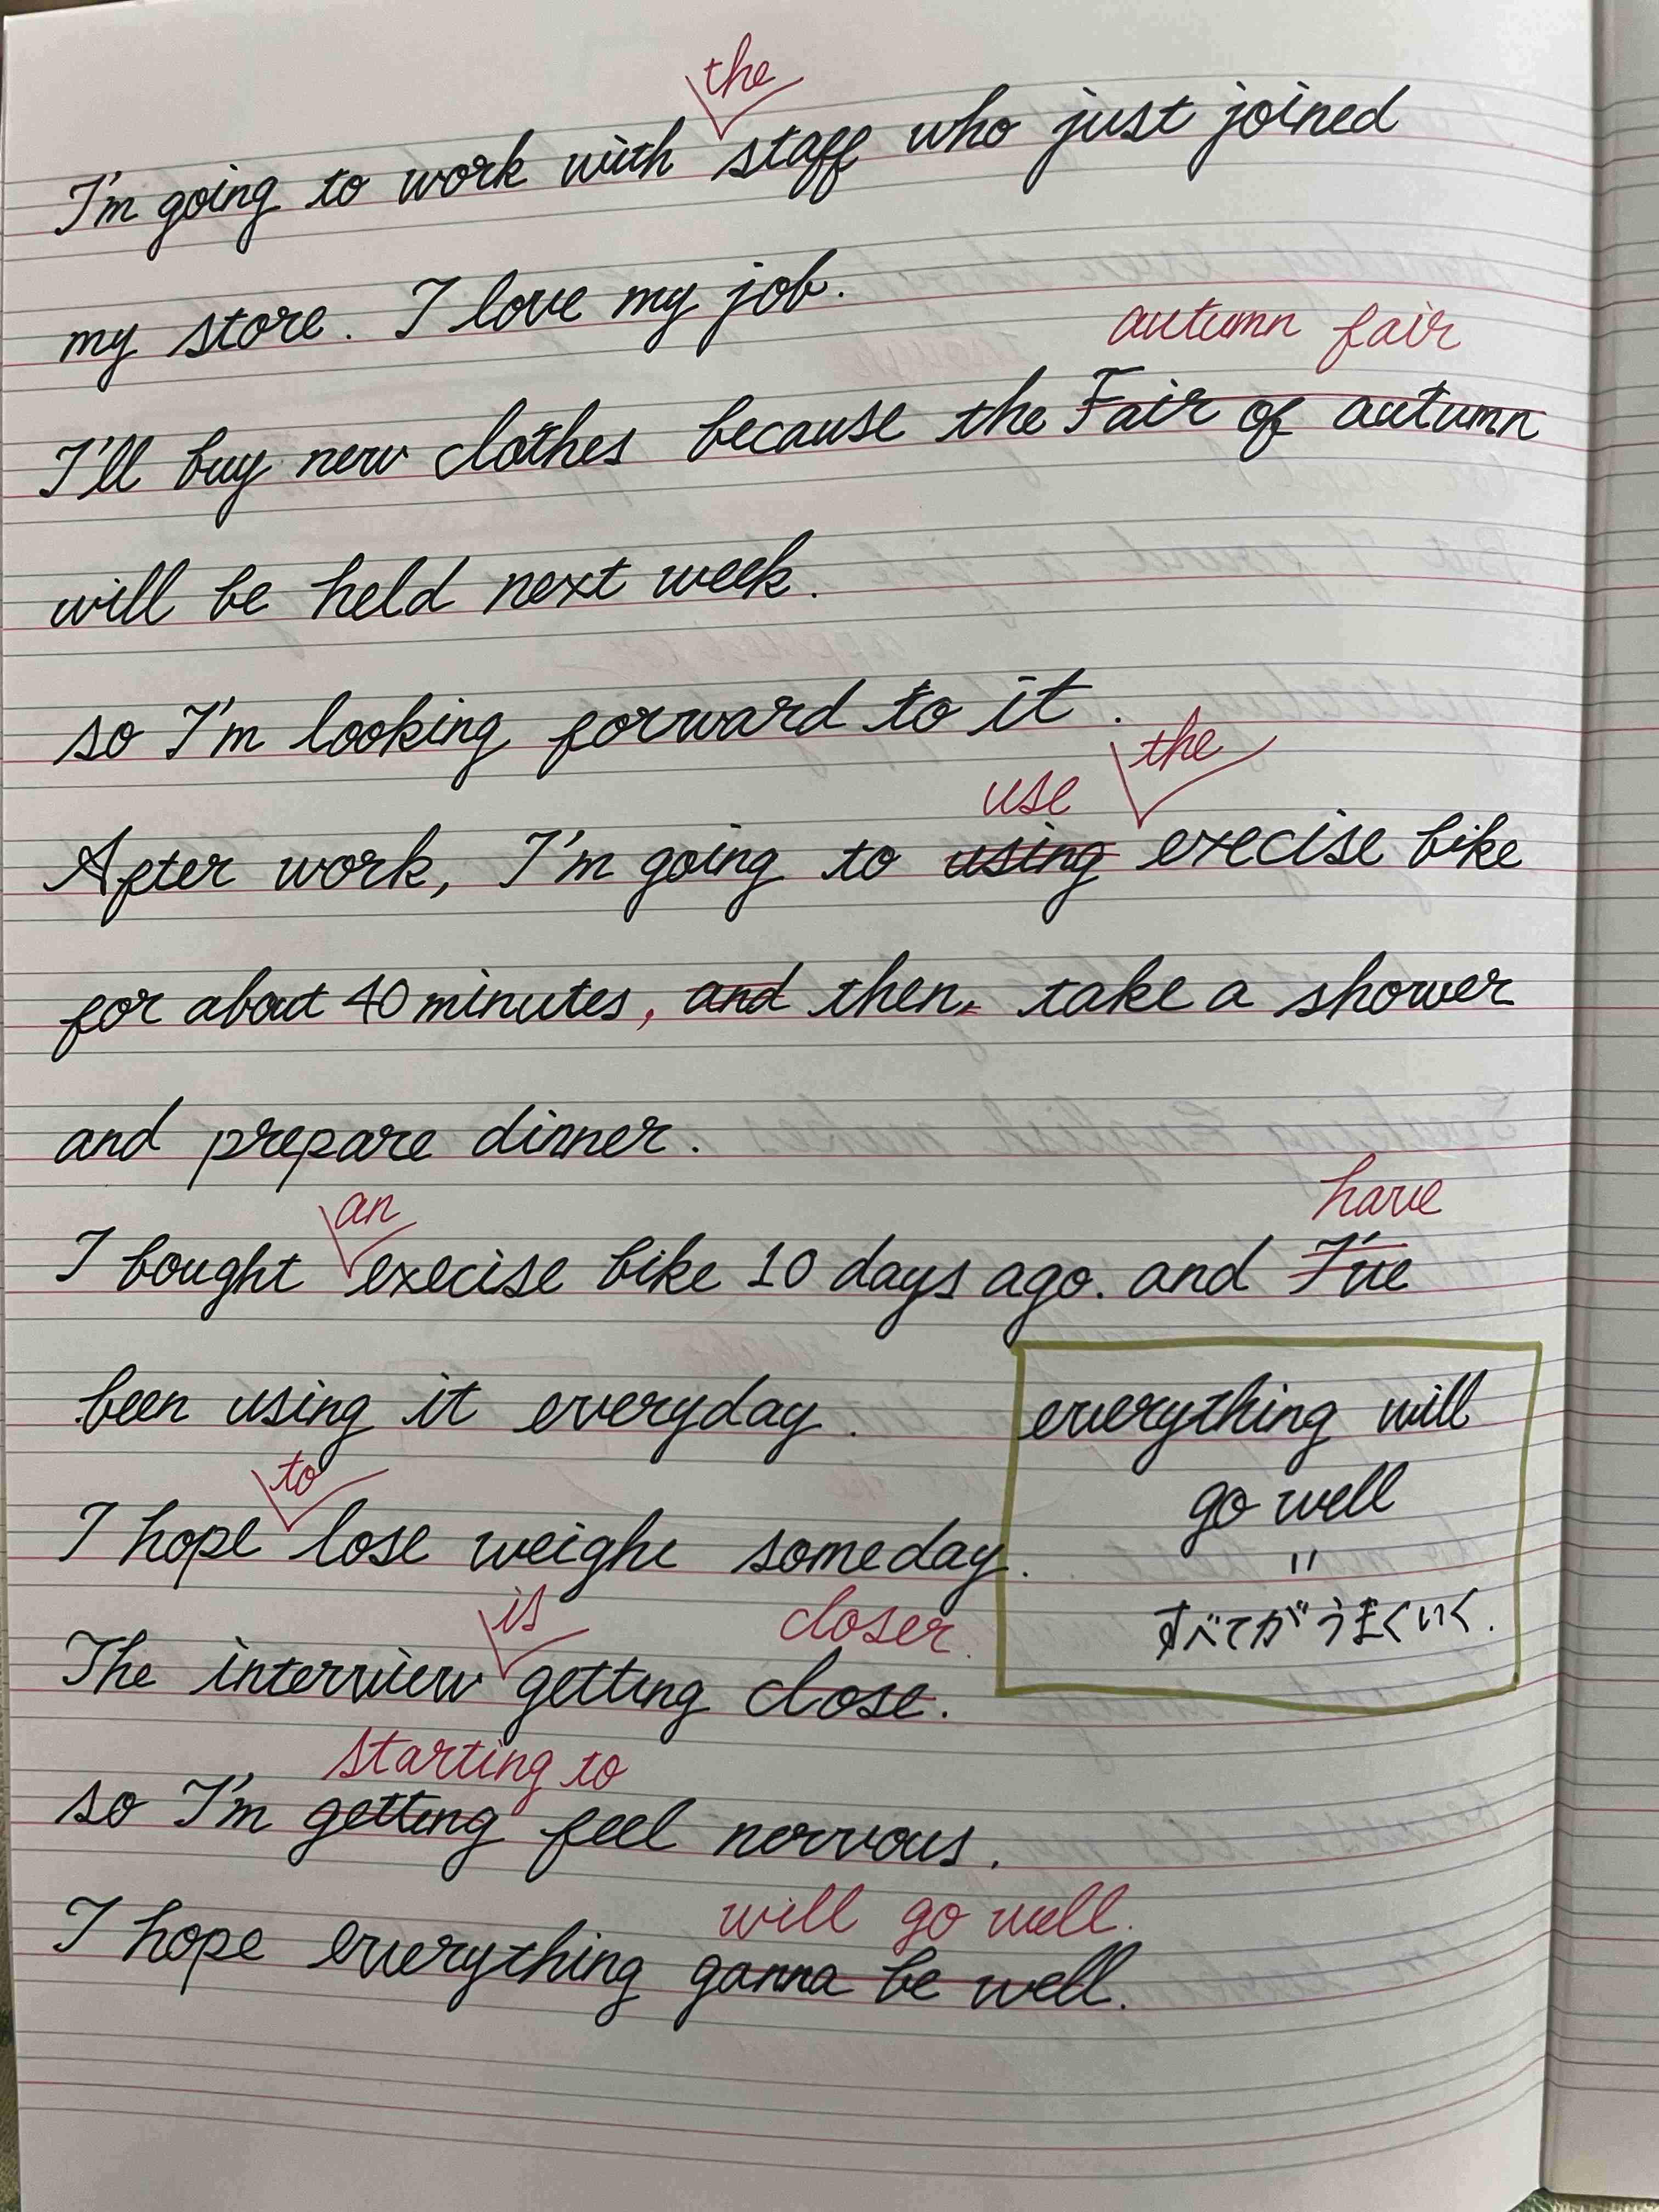 the
I'm going to work with staff who just joined
my store. I love my job.
autumn fair
I'll buy new clothes because the Fair of autumn
will be held next week.
so I'm looking forward to it.
use the
After work, I'm going to using execise bike
for about 40 minutes, and then, take a shower
and prepare dinner.
an have
I bought execise bike 10 days ago. and I've
been using it everyday.
to
I hope lose weight someday.
is closer.
The interview getting close.
starting to
so I'm getting feel nervous.
will go well.
I hope everything ganna be well.
everything will
go well
=
すべてがうまくいく.